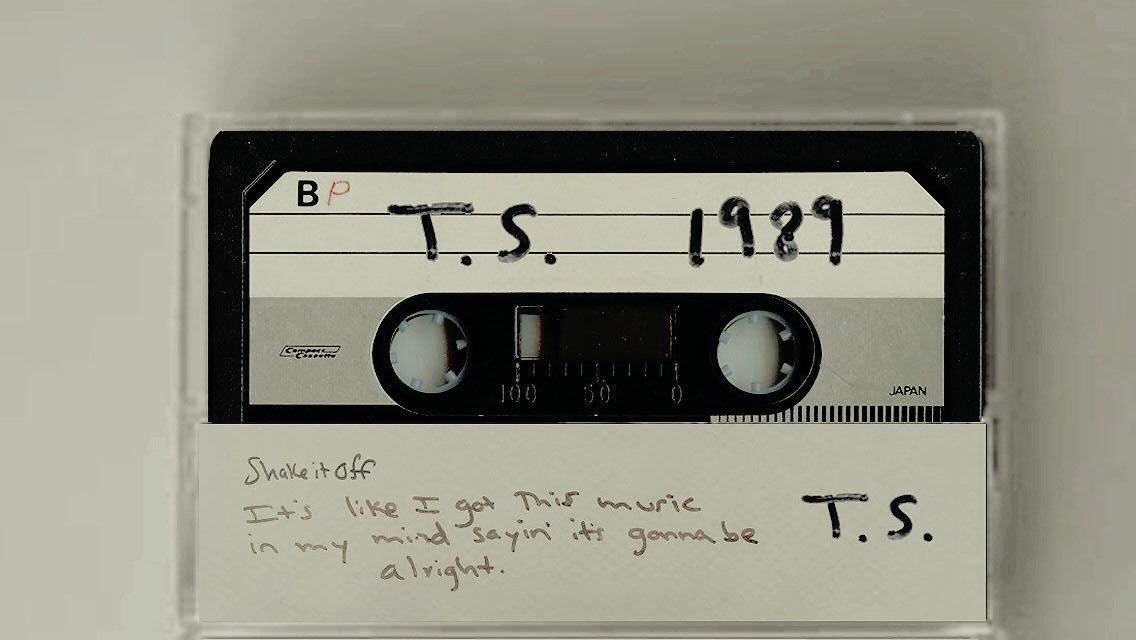 B P
T. S. 1989
Compact Cassette
100 50 0
JAPAN
Shake it Off
It's like I got This music
in my mind sayin' it's gonna be
alright.
T. S.